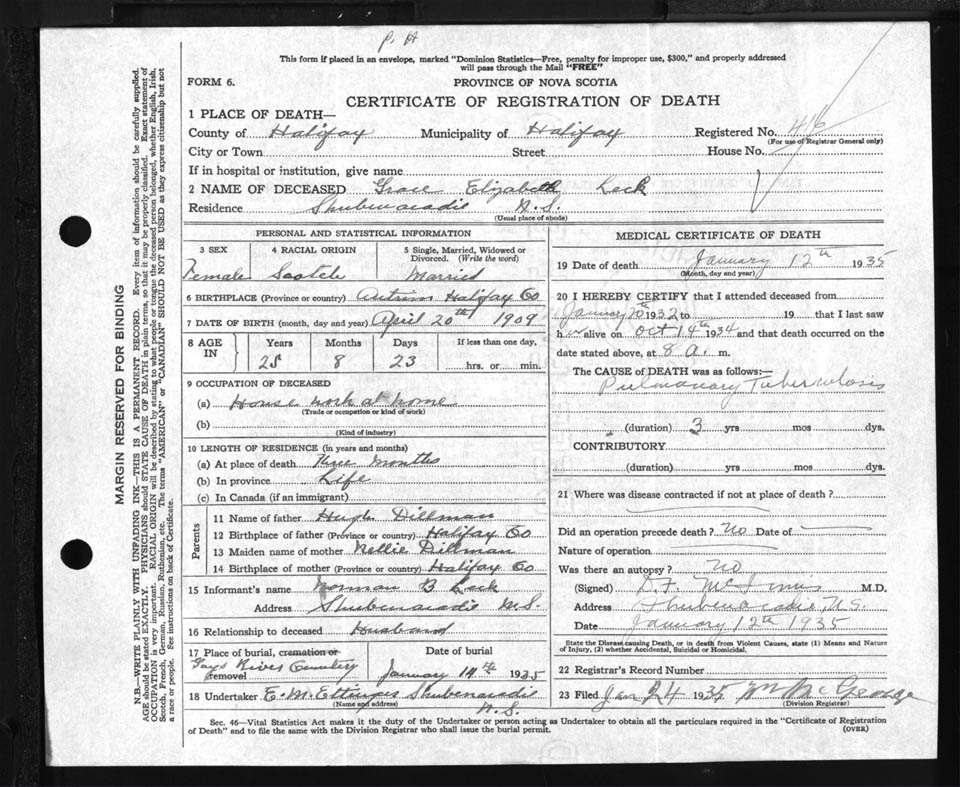 P. H
This form if placed in an envelope, marked "Dominion Statistics—Free, penalty for improper use, $300," and properly addressed
will pass through the Mail "FREE"
FORM 6.
PROVINCE OF NOVA SCOTIA
CERTIFICATE OF REGISTRATION OF DEATH
1 PLACE OF DEATH—
County of Halifax Municipality of Halifax Registered No. 416
(For use of Registrar General only)
City or Town Street House No.
If in hospital or institution, give name
2 NAME OF DECEASED Grace Elizabeth Leck
Residence Shubenacadie N.S.
(Usual place of abode)
PERSONAL AND STATISTICAL INFORMATION
3 SEX 4 RACIAL ORIGIN 5 Single, Married, Widowed or
Divorced. (Write the word)
Female Scotch Married
6 BIRTHPLACE (Province or country) Antrim Halifax Co
7 DATE OF BIRTH (month, day and year) April 20th 1909
8 AGE IN Years Months Days If less than one day,
25 8 23 hrs. or min.
9 OCCUPATION OF DECEASED
(a) House work at home
(Trade or occupation or kind of work)
(b)
(Kind of industry)
10 LENGTH OF RESIDENCE (in years and months)
(a) At place of death Three Months
(b) In province Life
(c) In Canada (if an immigrant)
Parents
11 Name of father Hugh Dillman
12 Birthplace of father (Province or country) Halifax Co
13 Maiden name of mother Nellie Dillman
14 Birthplace of mother (Province or country) Halifax Co
15 Informant's name Norman B Leck
Address Shubenacadie N.S.
16 Relationship to deceased Husband
17 Place of burial, cremation or removal Date of burial
Gays River Cemetery January 14th 1935
18 Undertaker E. M. Ettinger Shubenacadie
(Name and address) N.S.
MEDICAL CERTIFICATE OF DEATH
19 Date of death January 12th 1935
(Month, day and year)
20 I HEREBY CERTIFY that I attended deceased from
January 20th 1932 to 19 that I last saw
h er alive on Oct 14th 1934 and that death occurred on the
date stated above, at 8 a. m.
The CAUSE of DEATH was as follows:—
Pulmonary Tuberculosis
(duration) 3 yrs mos dys.
CONTRIBUTORY
(duration) yrs. mos dys.
21 Where was disease contracted if not at place of death?
Did an operation precede death? No Date of
Nature of operation
Was there an autopsy? No
(Signed) D.F. McInnis M.D.
Address Shubenacadie N.S.
Date January 12th 1935
State the Disease causing Death, or in death from Violent Causes, state (1) Means and Nature
of Injury, (2) whether Accidental, Suicidal or Homicidal.
22 Registrar's Record Number
23 Filed Jan 24 1935 Wm McGeorge
(Division Registrar)
Sec. 46—Vital Statistics Act makes it the duty of the Undertaker or person acting as Undertaker to obtain all the particulars required in the "Certificate of Registration
of Death" and to file the same with the Division Registrar who shall issue the burial permit.
(OVER)
MARGIN RESERVED FOR BINDING
N.B.—WRITE PLAINLY WITH UNFADING INK—THIS IS A PERMANENT RECORD. Every item of information should be carefully supplied.
AGE should be stated EXACTLY. PHYSICIANS should STATE CAUSE OF DEATH in plain terms, so that it may be properly classified. Exact statement of
OCCUPATION is very important. RACIAL ORIGIN will be described by stating to what people or tongue the deceased person belonged, whether English, Irish,
Scotch, French, German, Russian, Ruthenian, etc. The terms "AMERICAN" or "CANADIAN" SHOULD NOT BE USED as they express citizenship but not
a race or people. See instructions on back of Certificate.